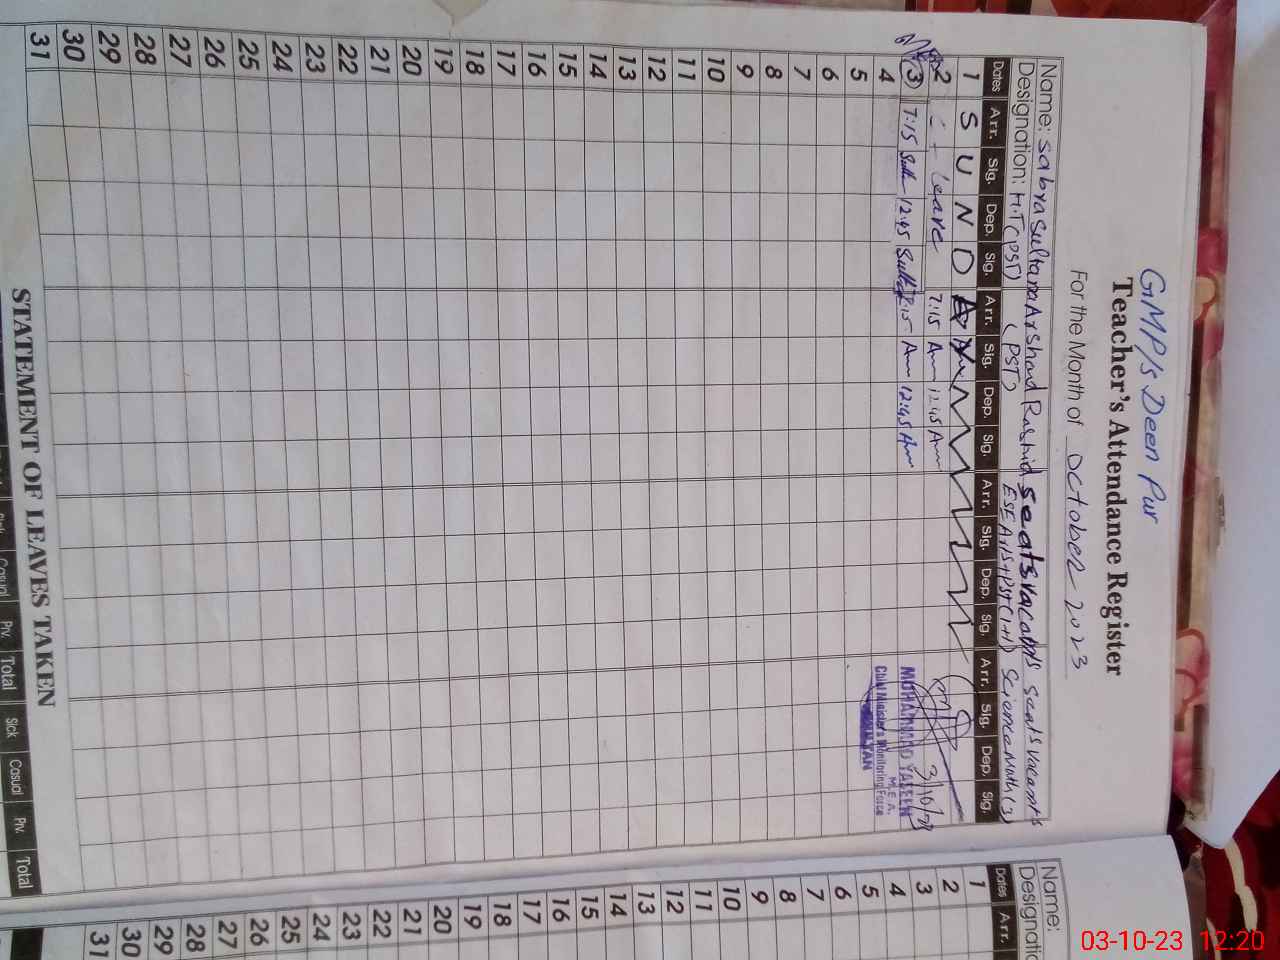 GMP/s Deen Pur
Teacher's Attendance Register
For the Month of October 2023
Name: Sabra Sultana Arshad Rashid Seats vacants seats vacants
Designation: H.T (PST) (PST) ESE Arts+PST (1+1) Science Math (3)
Dates Arr. Sig. Dep. Sig. Arr. Sig. Dep. Sig. Arr. Sig. Dep. Sig. Arr. Sig. Dep. Sig.
1 S U N D A Y
2 Leave 7:15 12:45
3 7:15 12:45 7:15 12:45 3/10/23
MUHAMMAD YASEEN
M.E.A.
Chief Minister's Monitoring Force
4
5
6
7
8
9
10
11
12
13
14
15
16
17
18
19
20
21
22
23
24
25
26
27
28
29
30
31
STATEMENT OF LEAVES TAKEN
Casual Prv. Total Sick Casual Prv. Total
Name:
Designati
Dates Arr.
1
2
3
4
5
6
7
8
9
10
11
12
13
14
15
16
17
18
19
20
21
22
23
24
25
26
27
28
29
30
31
03-10-23 12:20